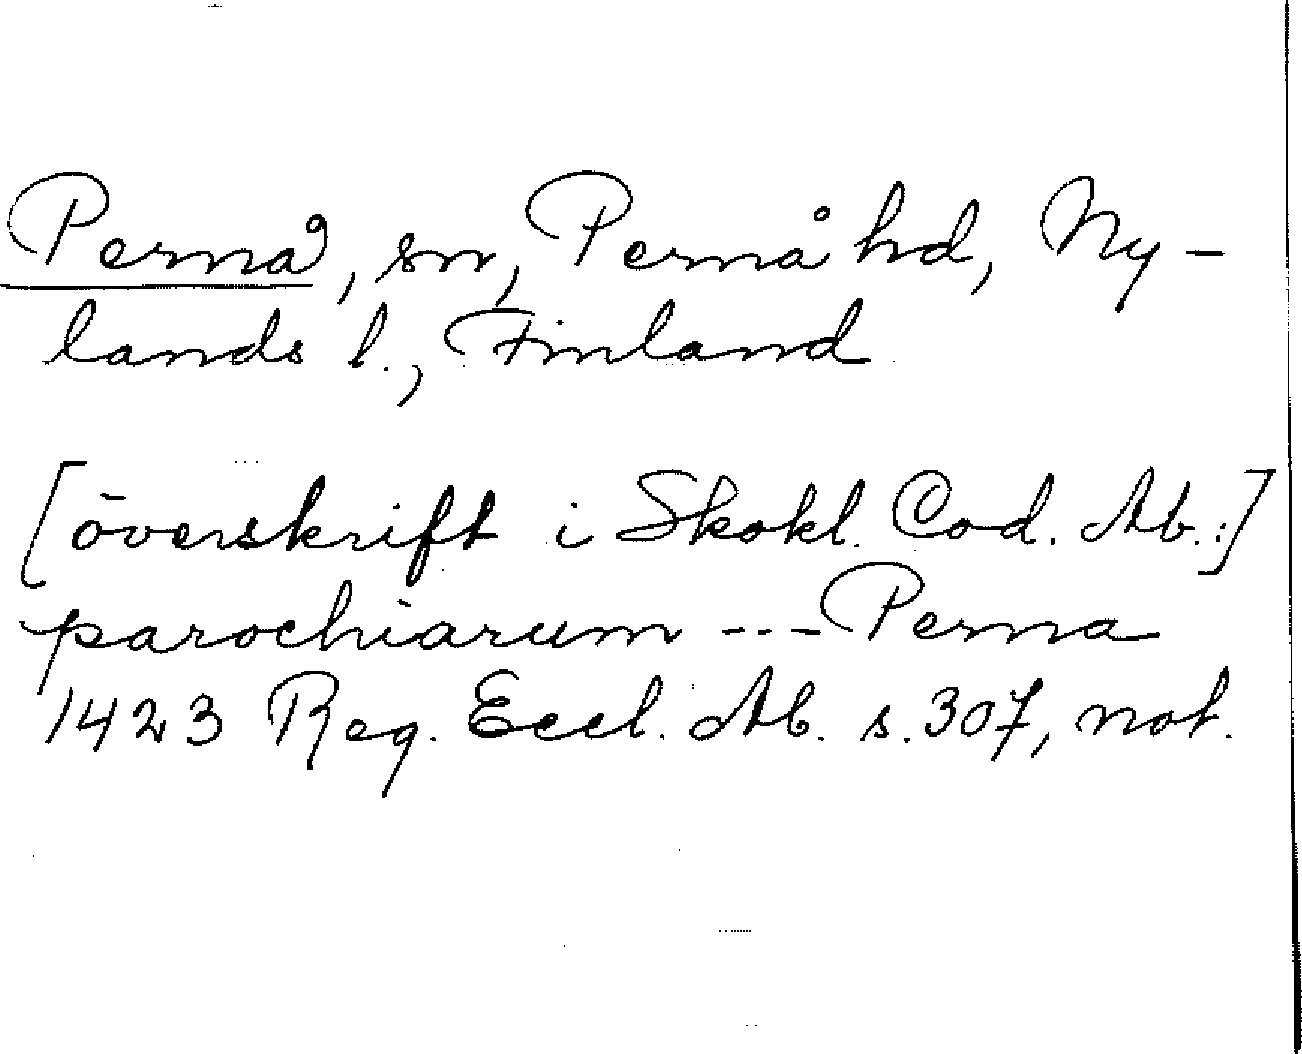 Pernå, sn, Pernå hd, Ny-
lands l., Finland
[överskrift i Skokl. Cod. Ab.:]
parochiarum --- Perna
1423 Reg. Eccl. Ab. s. 307, not.